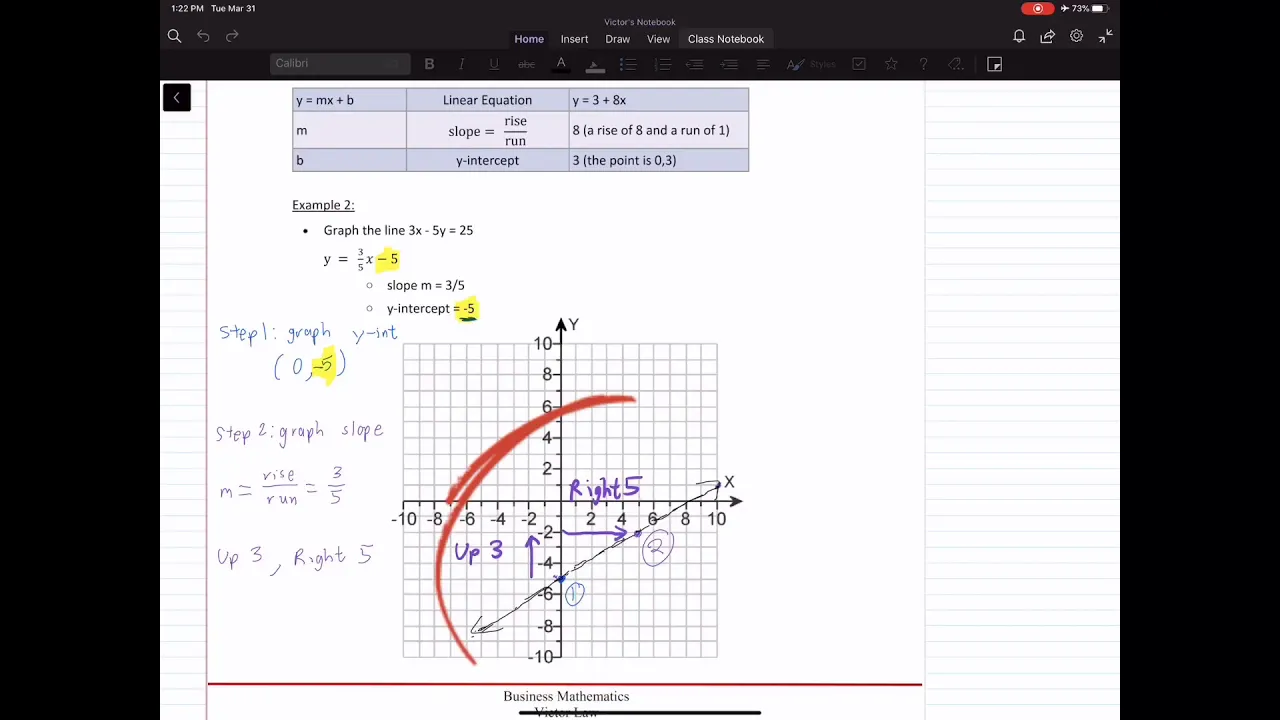 1:22 PM Tue Mar 31
73%
Victor's Notebook
Home Insert Draw View Class Notebook
Calibri
B I U abc A Styles ?
y = mx + b Linear Equation y = 3 + 8x
m slope = rise/run 8 (a rise of 8 and a run of 1)
b y-intercept 3 (the point is 0,3)
Example 2:
• Graph the line 3x - 5y = 25
y = 3/5 x − 5
○ slope m = 3/5
○ y-intercept = -5
Step 1: graph y-int
(0, -5)
Step 2: graph slope
m = rise/run = 3/5
Up 3, Right 5
Y
10
8
6
4
2
X
Right 5
-10 -8 -6 -4 -2 2 4 6 8 10
-2
Up 3
2
-4
1
-6
-8
-10
Business Mathematics
Victor Law